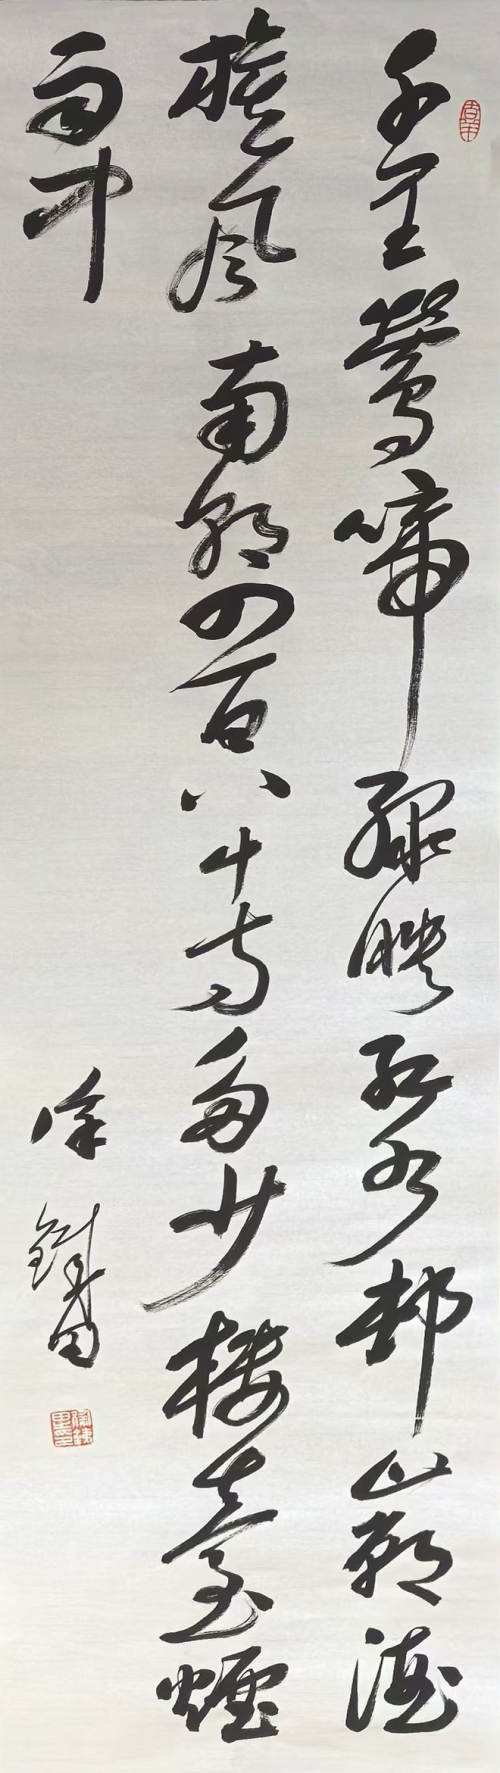 千里鶯啼綠映紅水邨山郭酒
旗風南朝四百八十寺多少樓臺煙
雨中
徐